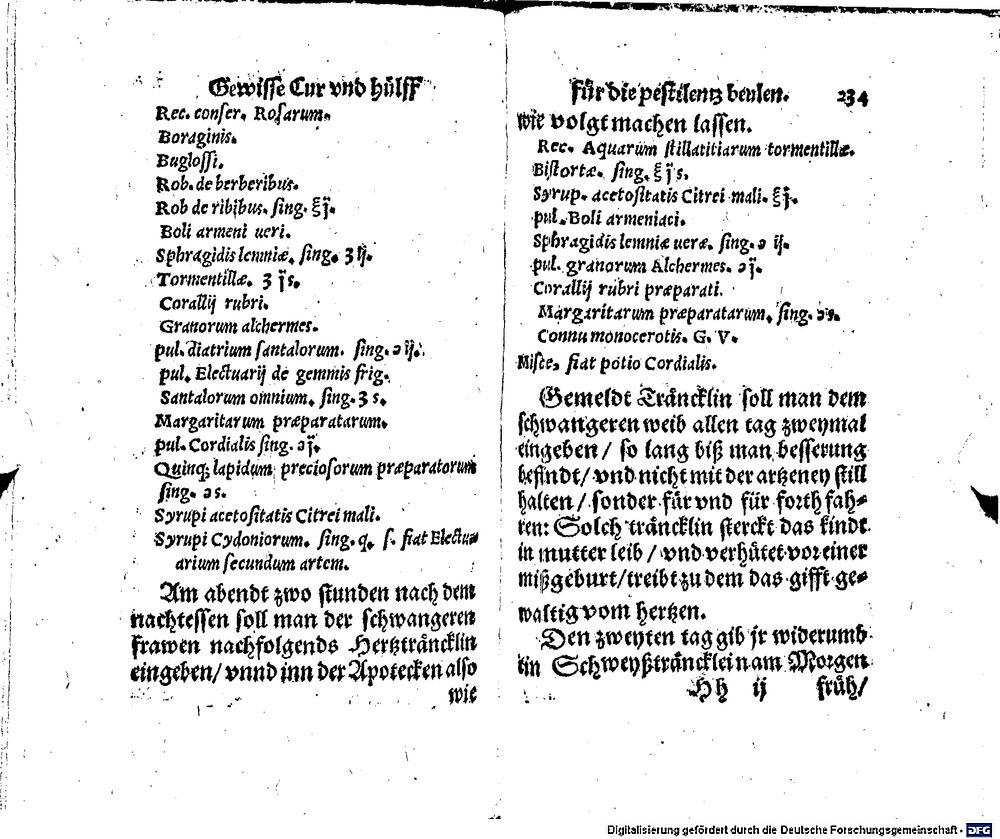 Gewisse Cur vnd hülff
Rec. conser. Rosarum.
Boraginis.
Buglossi.
Rob. de berberibus.
Rob de ribibus. sing. ℥ j.
Boli armeni ueri.
Sphragidis lemniæ. sing. ʒ ij.
Tormentillæ. ʒ j s.
Corallij rubri.
Granorum alchermes.
pul. diatrium santalorum. sing. ℈ ij.
pul. Electuarij de gemmis frig.
Santalorum omnium. sing. ʒ s.
Margaritarum præparatarum.
pul. Cordialis sing. ℈ j.
Quinq; lapidum preciosorum præparatorum
sing. ℈ s.
Syrupi acetositatis Citrei mali.
Syrupi Cydoniorum. sing. q. s. fiat Electu-
arium secundum artem.
Am abendt zwo stunden nach dem
nachtessen soll man der schwangeren
frawen nachfolgends Hertzträncklin
eingeben/ vnnd inn der Apotecken also
wie
Für die pestilentz beulen. 234
wie volgt machen lassen.
Rec. Aquarum stillatitiarum tormentillæ.
Bistortæ. sing. ℥ j s.
Syrup. acetositatis Citrei mali. ℥ j.
pul. Boli armeniaci.
Sphragidis lemniæ ueræ. sing. ℈ ij.
pul. granorum Alchermes. ℈ j.
Corallij rubri præparati.
Margaritarum præparatarum. sing. ℈ s.
Connu monocerotis. G. V.
Misce, fiat potio Cordialis.
Gemeldt Träncklin soll man dem
schwangeren weib allen tag zweymal
eingeben/ so lang biß man besserung
befindt/ vnd nicht mit der artzeney still
halten/ sonder für vnd für forth fah-
ren: Solch träncklin sterckt das kindt
in mutter leib/ vnd verhütet vor einer
mißgeburt/ treibt zu dem das gifft ge-
waltig vom hertzen.
Den zweyten tag gib jr widerumb
ein Schweyßträncklein am Morgen
Hh ij früh/
Digitalisierung gefördert durch die Deutsche Forschungsgemeinschaft - DFG